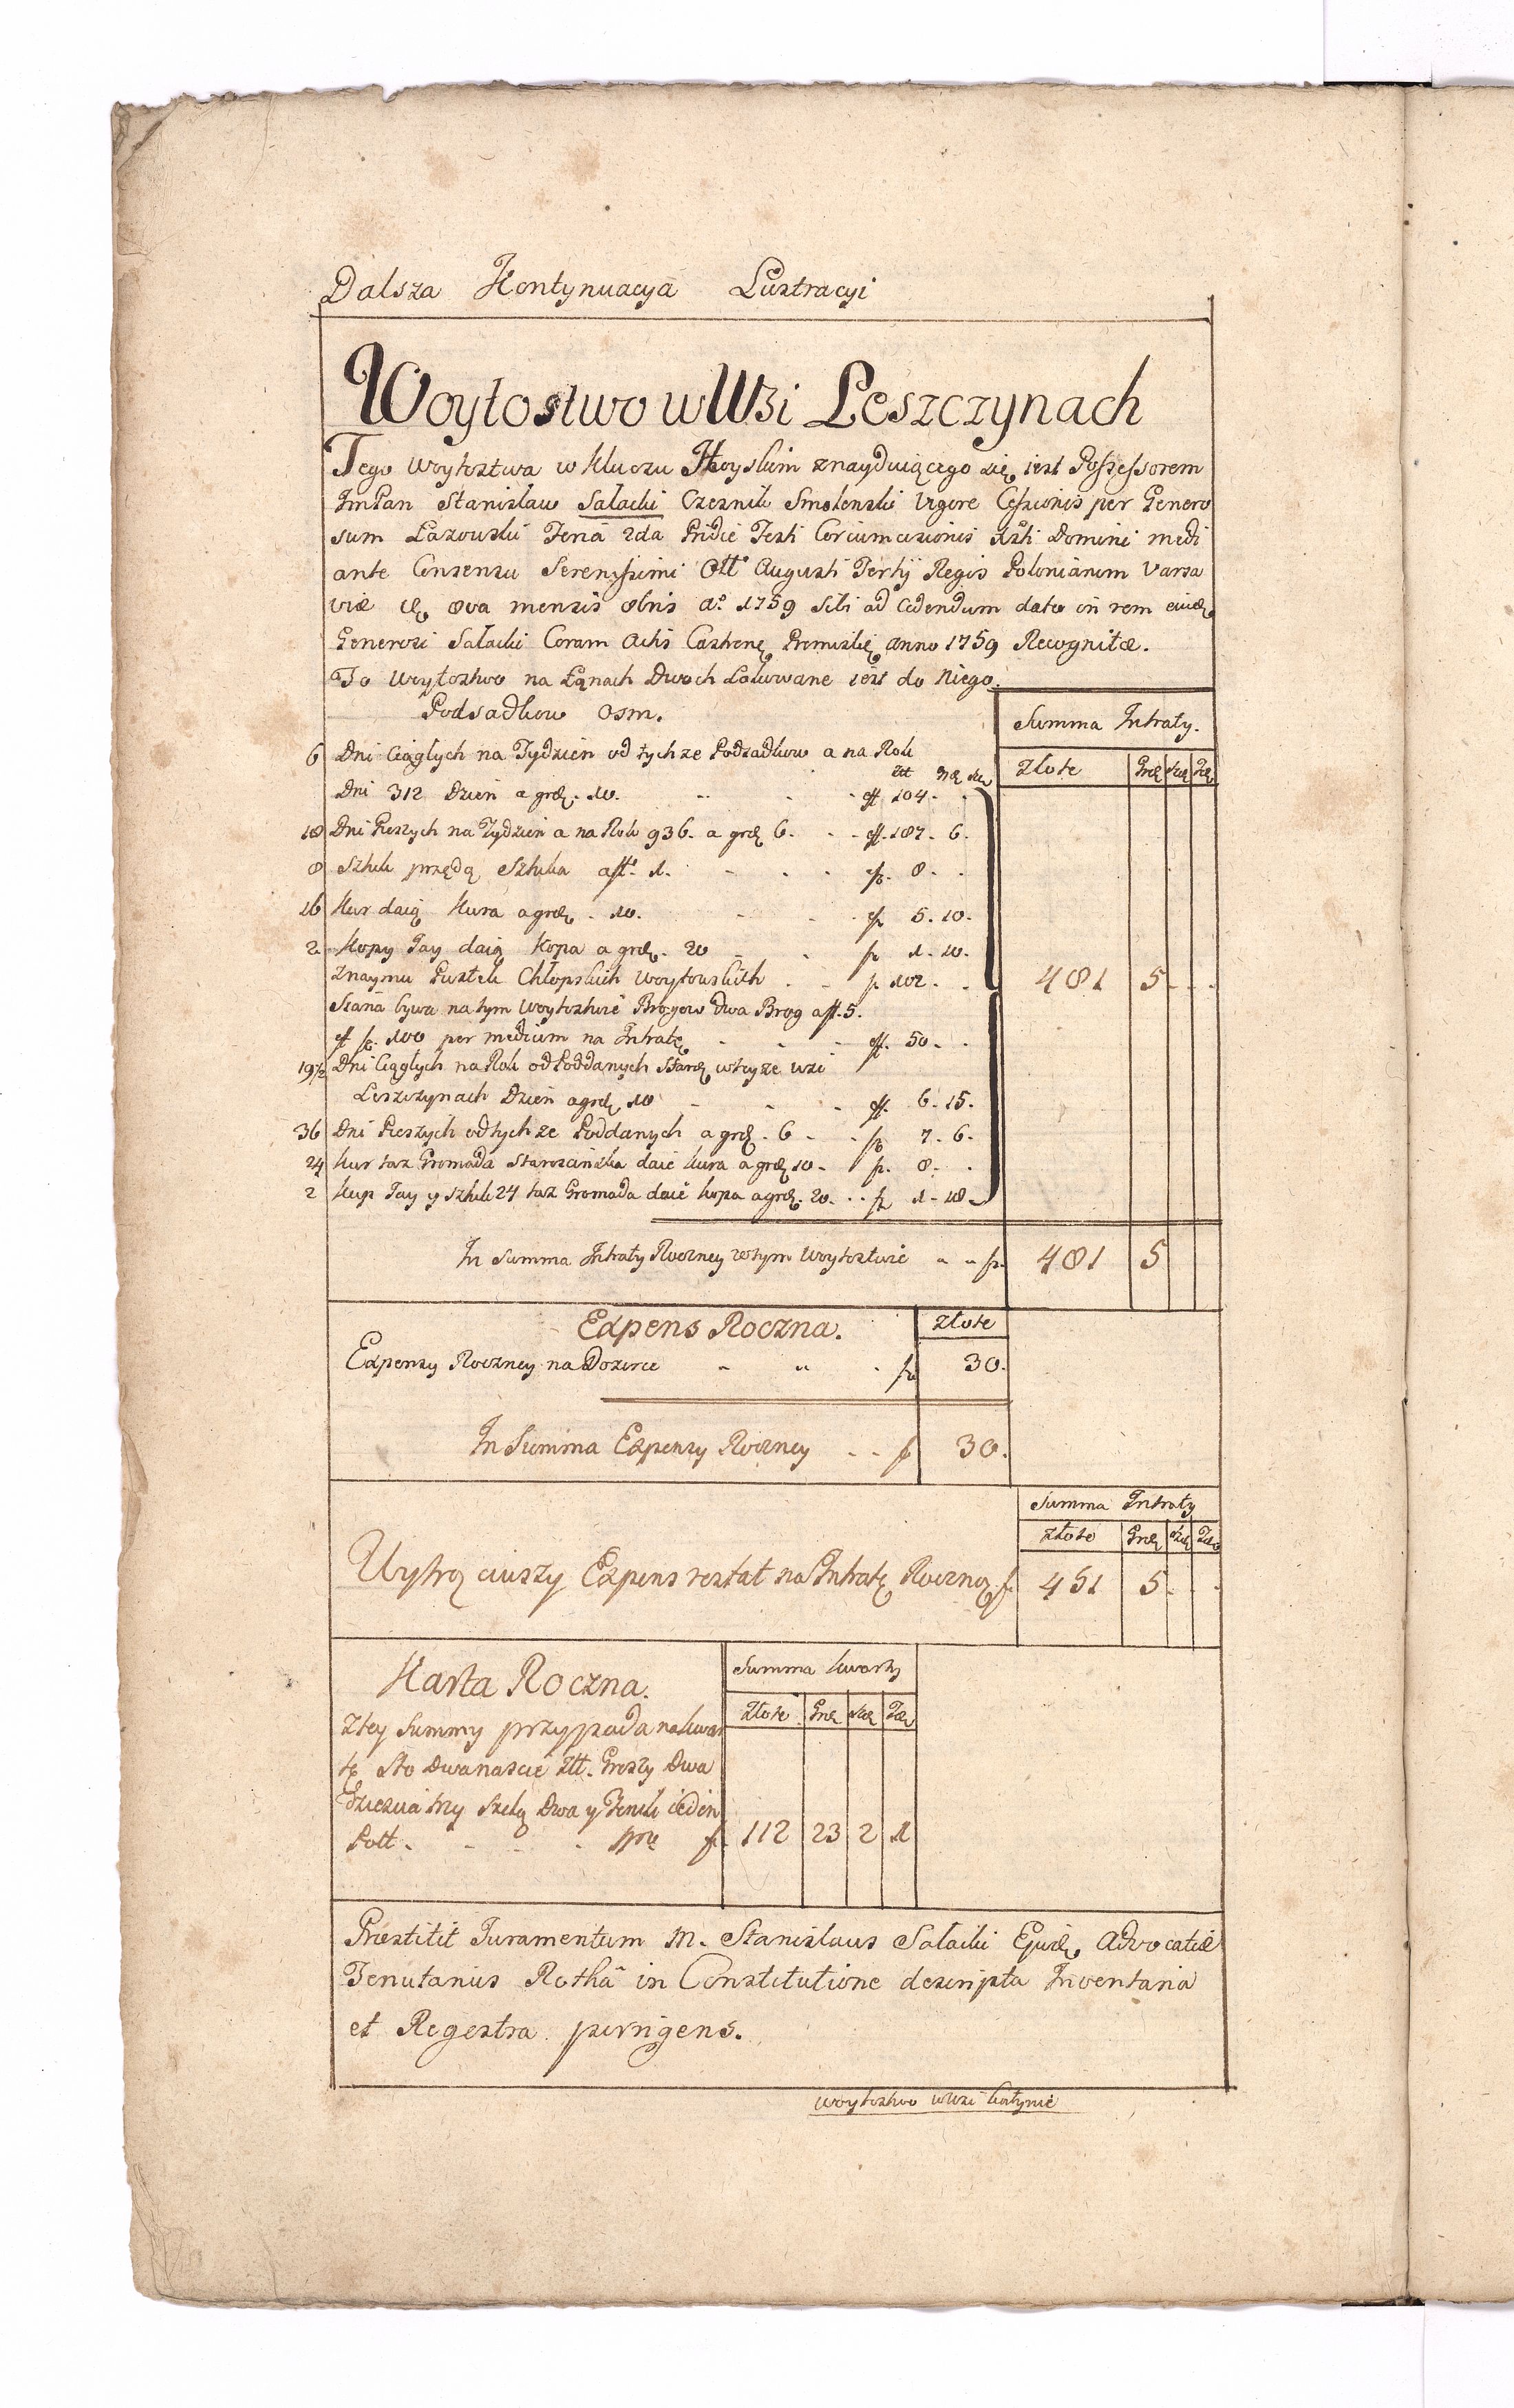 Dalsza Kontynuacya Lustracyi
Woytostwo w Wsi Leszczynach
Tego Woytostwa w Kluczu znayduiącego się iest Possessorem
ImPan Stanisław Salacki Czesnik Smolenski Vigore Cessionis per Genero
sum Łazowski Feria 2da Pridie Festi Circumcisionis Xsti Domini medi
ante Consensu Serenissimi Augusti Tertij Regis Poloniarum Varsa
viæ 8va mensis 8bris Aº 1759 sibi ad Cedendum dato in rem eiusdę
Generosi Salacki Coram Actis Castrenę Premislię anno 1759 Recognitæ.
To Woytostwo na Łanach Dwoch Lokowane iest do niego
Podsadkow Osm.
Summa Intraty.
6 Dni Ciągłych na Tydzień od tychże Podsadkow a na Rok
Złote Grę Szę
Dni 312 Dzień a grę. 10. - - - ff 104. -
18 Dni Pieszych na Tydzień a na Rok 936. a grę 6. - - ff. 187. 6.
8 Sztuk przędą Sztuka a ff. 1. - - - 8. -
16 Kur daią Kura a grę. 10. - - 5. 10.
2 Kopy Jay daią Kopa a grę. 20 - - 1. 10.
Znaymu Pustek Chłopskich Woytowskich - - 102. -
481 5 - -
Siana bywa na tym Woytostwie Brogow Dwa Brog a ff. 5.
100 per medium na Intratę - - - ff. 50. -
19½ Dni Ciągłych na Rok od Poddanych Starę w teyże wsi
Leszczynach Dzień a grę 10 - - - ff. 6. 15.
36 Dni Pieszych od tychże Poddanych a grę. 6 - - 7. 6.
24 Kur taż Gromada Starościńska daie kura a grę 10 - 8. -
2 Kop Jay y sztuk 24 taż Gromada daie kopa a grę. 20. - - 1. 18.
In Summa Intraty Roczney w tym Woytostwie - - 481 5
Expens Roczna. Złote
Expensy Roczney na Dozorce - - - 30.
In Summa Expensy Roczney - - 30.
Summa Intraty
Złote Grę Szę
Wytrąciwszy Expens restat na Intratę Roczną 451 5 - -
Karta Roczna. Summa kwarty
Złote Grę Szę
Z tey Summy przypada na kwar
tę Sto Dwanaście Złł. Groszy Dwa
dzieścia trzy Szelą Dwa y Fenik ieden
Poll. - - - 112 23 2 1
Præstitit Juramentum M. Stanislaus Salacki Ejusdę Advocatiæ
Tenutarius Rothâ in Constitutione descripta Inventaria
et Regestra porrigens.
Woytostwo w Wsi